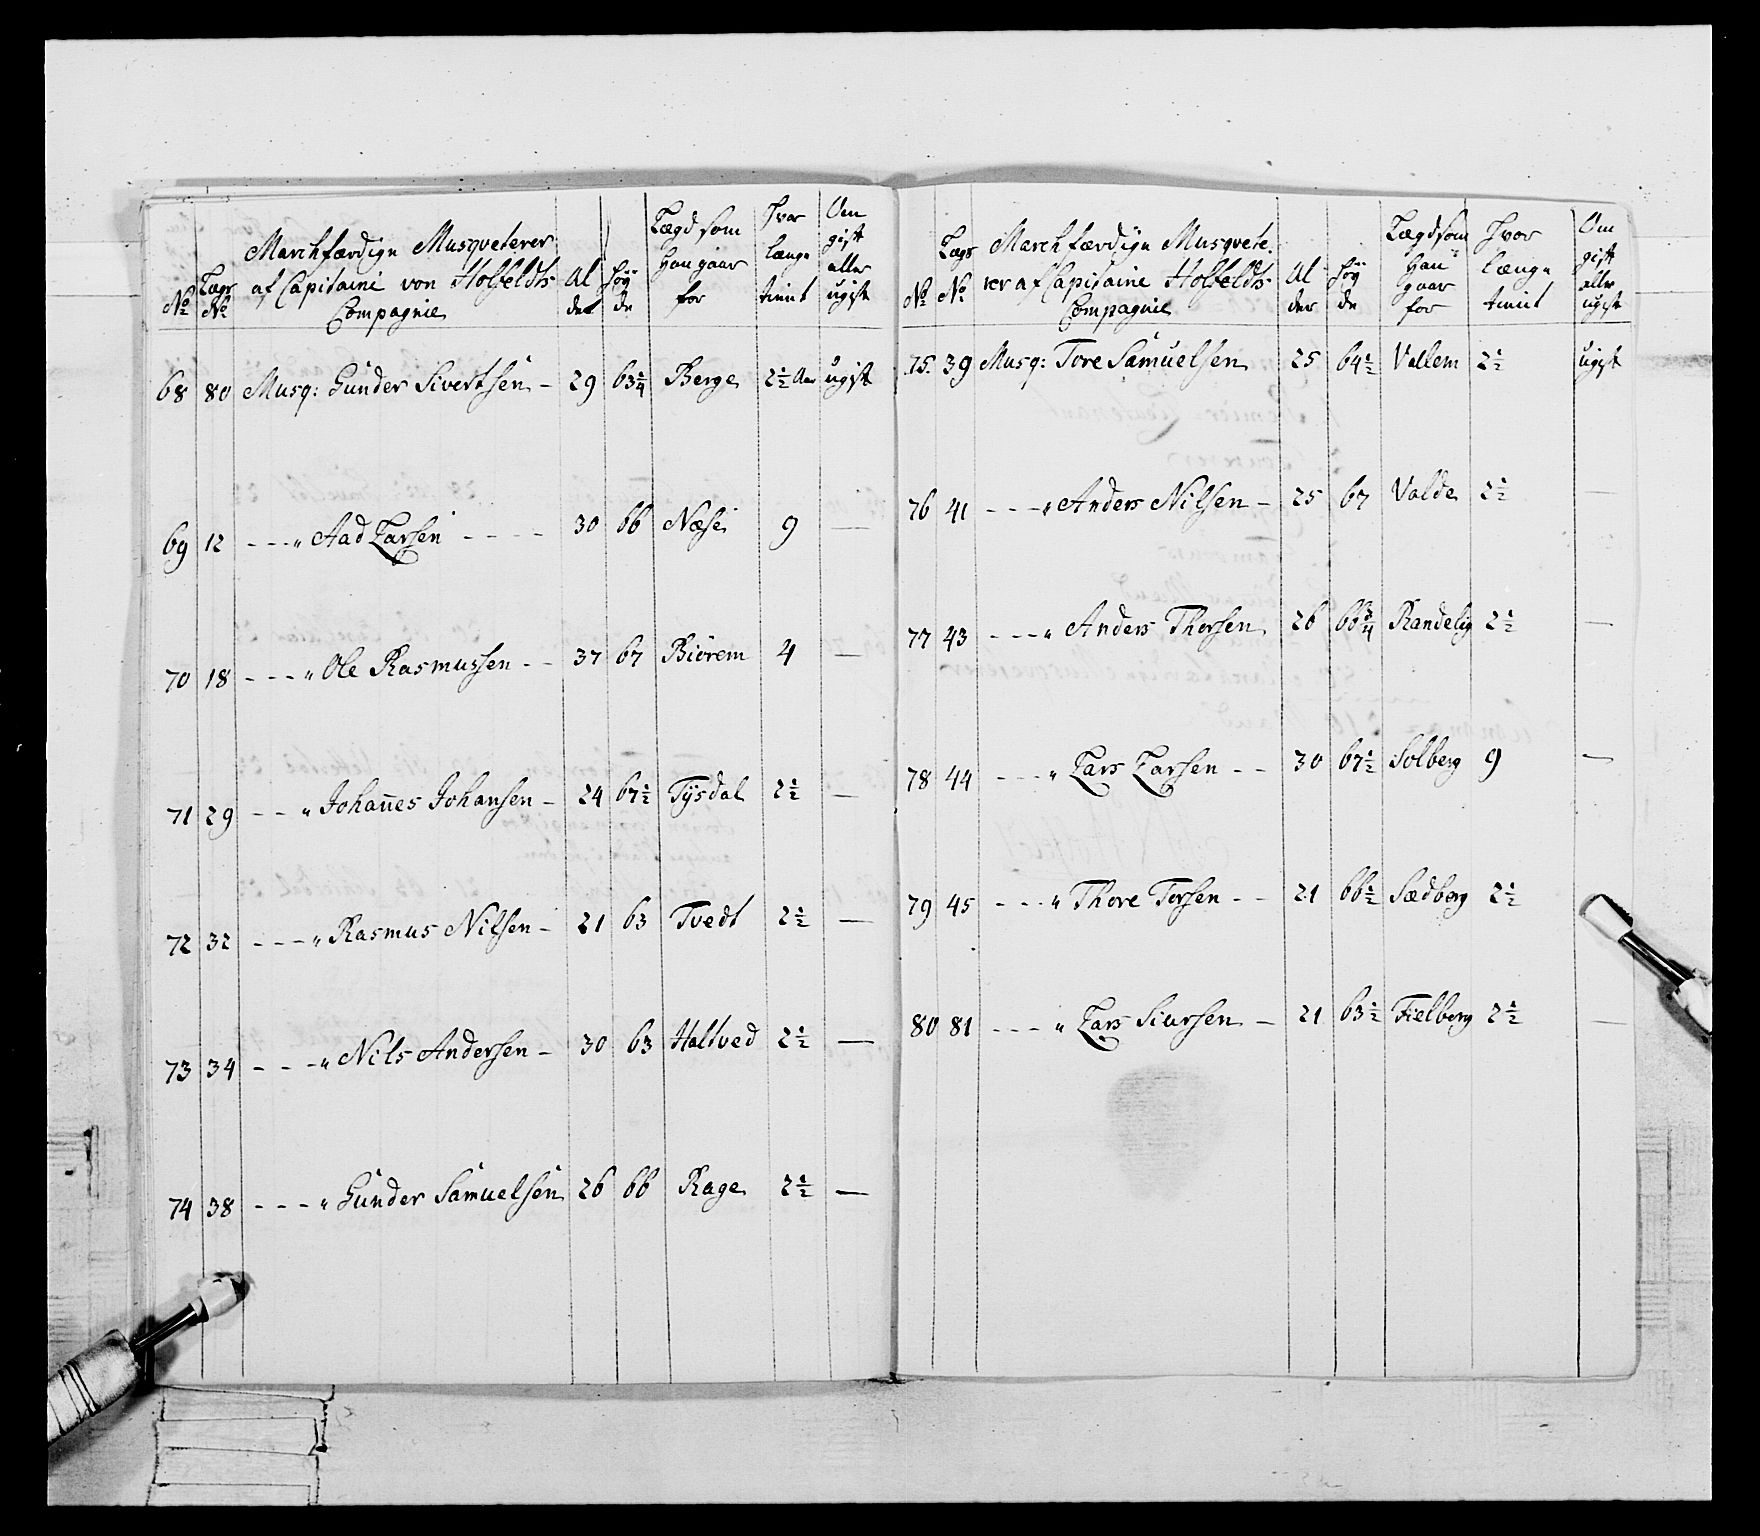 No Lægs No Marchfærdige Musqueterer af Capitaine von Holfeldts Compagnie Alder Høyde Lægd som Han gaar for Hvor længe tient Om gift eller ugift
68 80 Musq: Gunder Sivertsen - 29 63 1/4 Berge 2 1/2 Aar ugift
69 12 - - - " Aad Larsen - - - - 30 66 Næse 9 —
70 18 - - - " Ole Rasmussen - - 37 67 Biørem 4 —
71 29 - - " Johan̄es Johansen - 24 67 1/2 Tÿsdal 2 1/2 —
72 32 - - - " Rasmus Nilsen - 21 63 Tvedt 2 1/2 —
73 34 - - - " Nils Andersen - 30 63 Haltved 2 1/2 —
74 38 - - - " Gunder Samuelsen 26 66 Rage 2 1/2 —
No Lægs No Marchfærdige Musqueterer af Capitaine Holfeldts Compagnie Alder Høyde Lægd som Han gaar for Hvor længe tient Om gift eller ugift
75. 39 Musq: Tore Samuelsen 25 64 1/2 Vallem 2 1/2 ugift
76 41 - - - " Anders Nilsen - 25 67 Valde 2 1/2 —
77 43 - - - " Anders Thorsen 26 66 3/4 Randelig 2 1/2 —
78 44 - - - " Lars Larsen - - 30 67 1/2 Solberg 9 —
79 45 - - - " Thore Torsen - - 21 66 1/2 Sædberg 2 1/2
80 81 - - - " Lars Siursen - 21 63 1/2 Fielberg 2 1/2 —